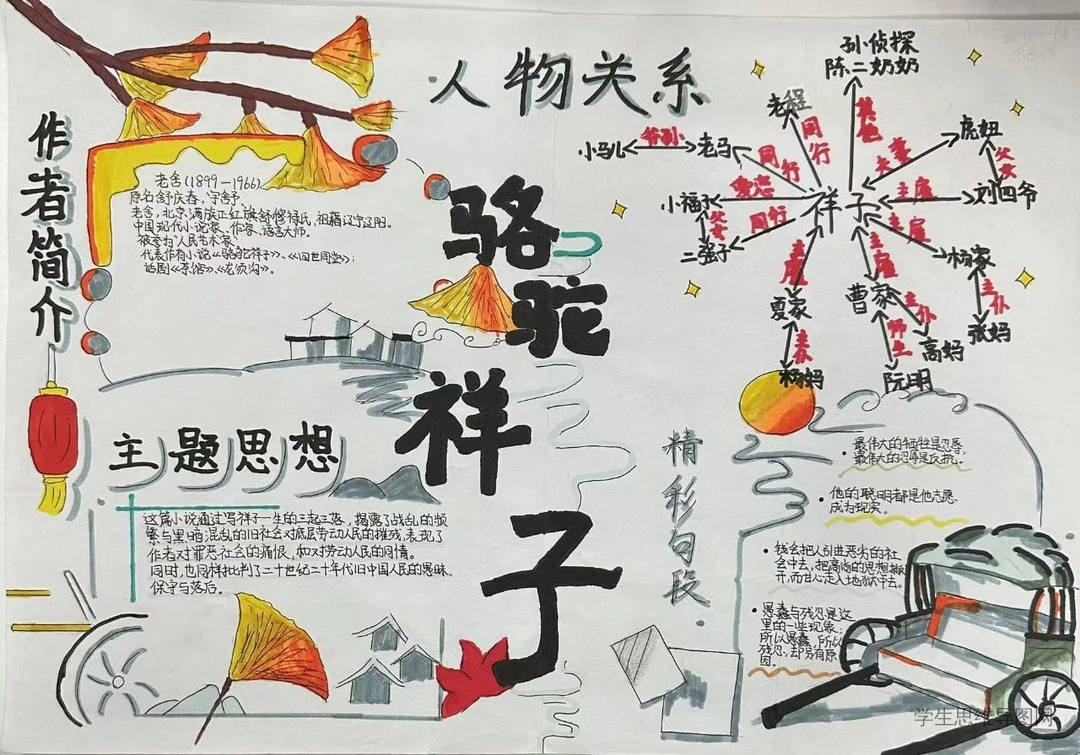 作者简介
老舍(1899—1966)
原名舒庆春,字舍予
老舍,北京满族正红旗舒穆禄氏,祖籍辽宁辽阳。
中国现代小说家、作家、语言大师。
被誉为“人民艺术家”
代表作有小说《骆驼祥子》、《四世同堂》;
话剧《茶馆》、《龙须沟》。
骆驼祥子
人物关系
孙侦探
陈二奶奶
其他
老程
同行
小马儿
爷孙
老马
同行
小福子
爱恋
父女
二强子
同行
祥子
虎妞
夫妻
父女
刘四爷
主雇
杨家
主雇
主仆
张妈
夏家
主雇
主仆
杨妈
曹家
主雇
主仆
高妈
师生
阮明
主题思想
这篇小说通过写祥子一生的三起三落,揭露了战乱的频
繁与黑暗混乱的旧社会对底层劳动人民的摧残,表现了
作者对罪恶社会的痛恨,和对劳动人民的同情。
同时,也同样批判了二十世纪二十年代旧中国人民的愚昧、
保守与落后。
精彩句段
最伟大的牺牲是忍辱,
最伟大的忍辱是反抗。
他的聪明都是他志愿
成为现实。
钱会把人引进恶劣的社
会中去,把高尚的思想撇
开,而甘心走入地狱中去。
愚蠢与残忍是这
里的一些现象;
所以愚蠢,所以
残忍,却另有原
因。
学生思维导图网